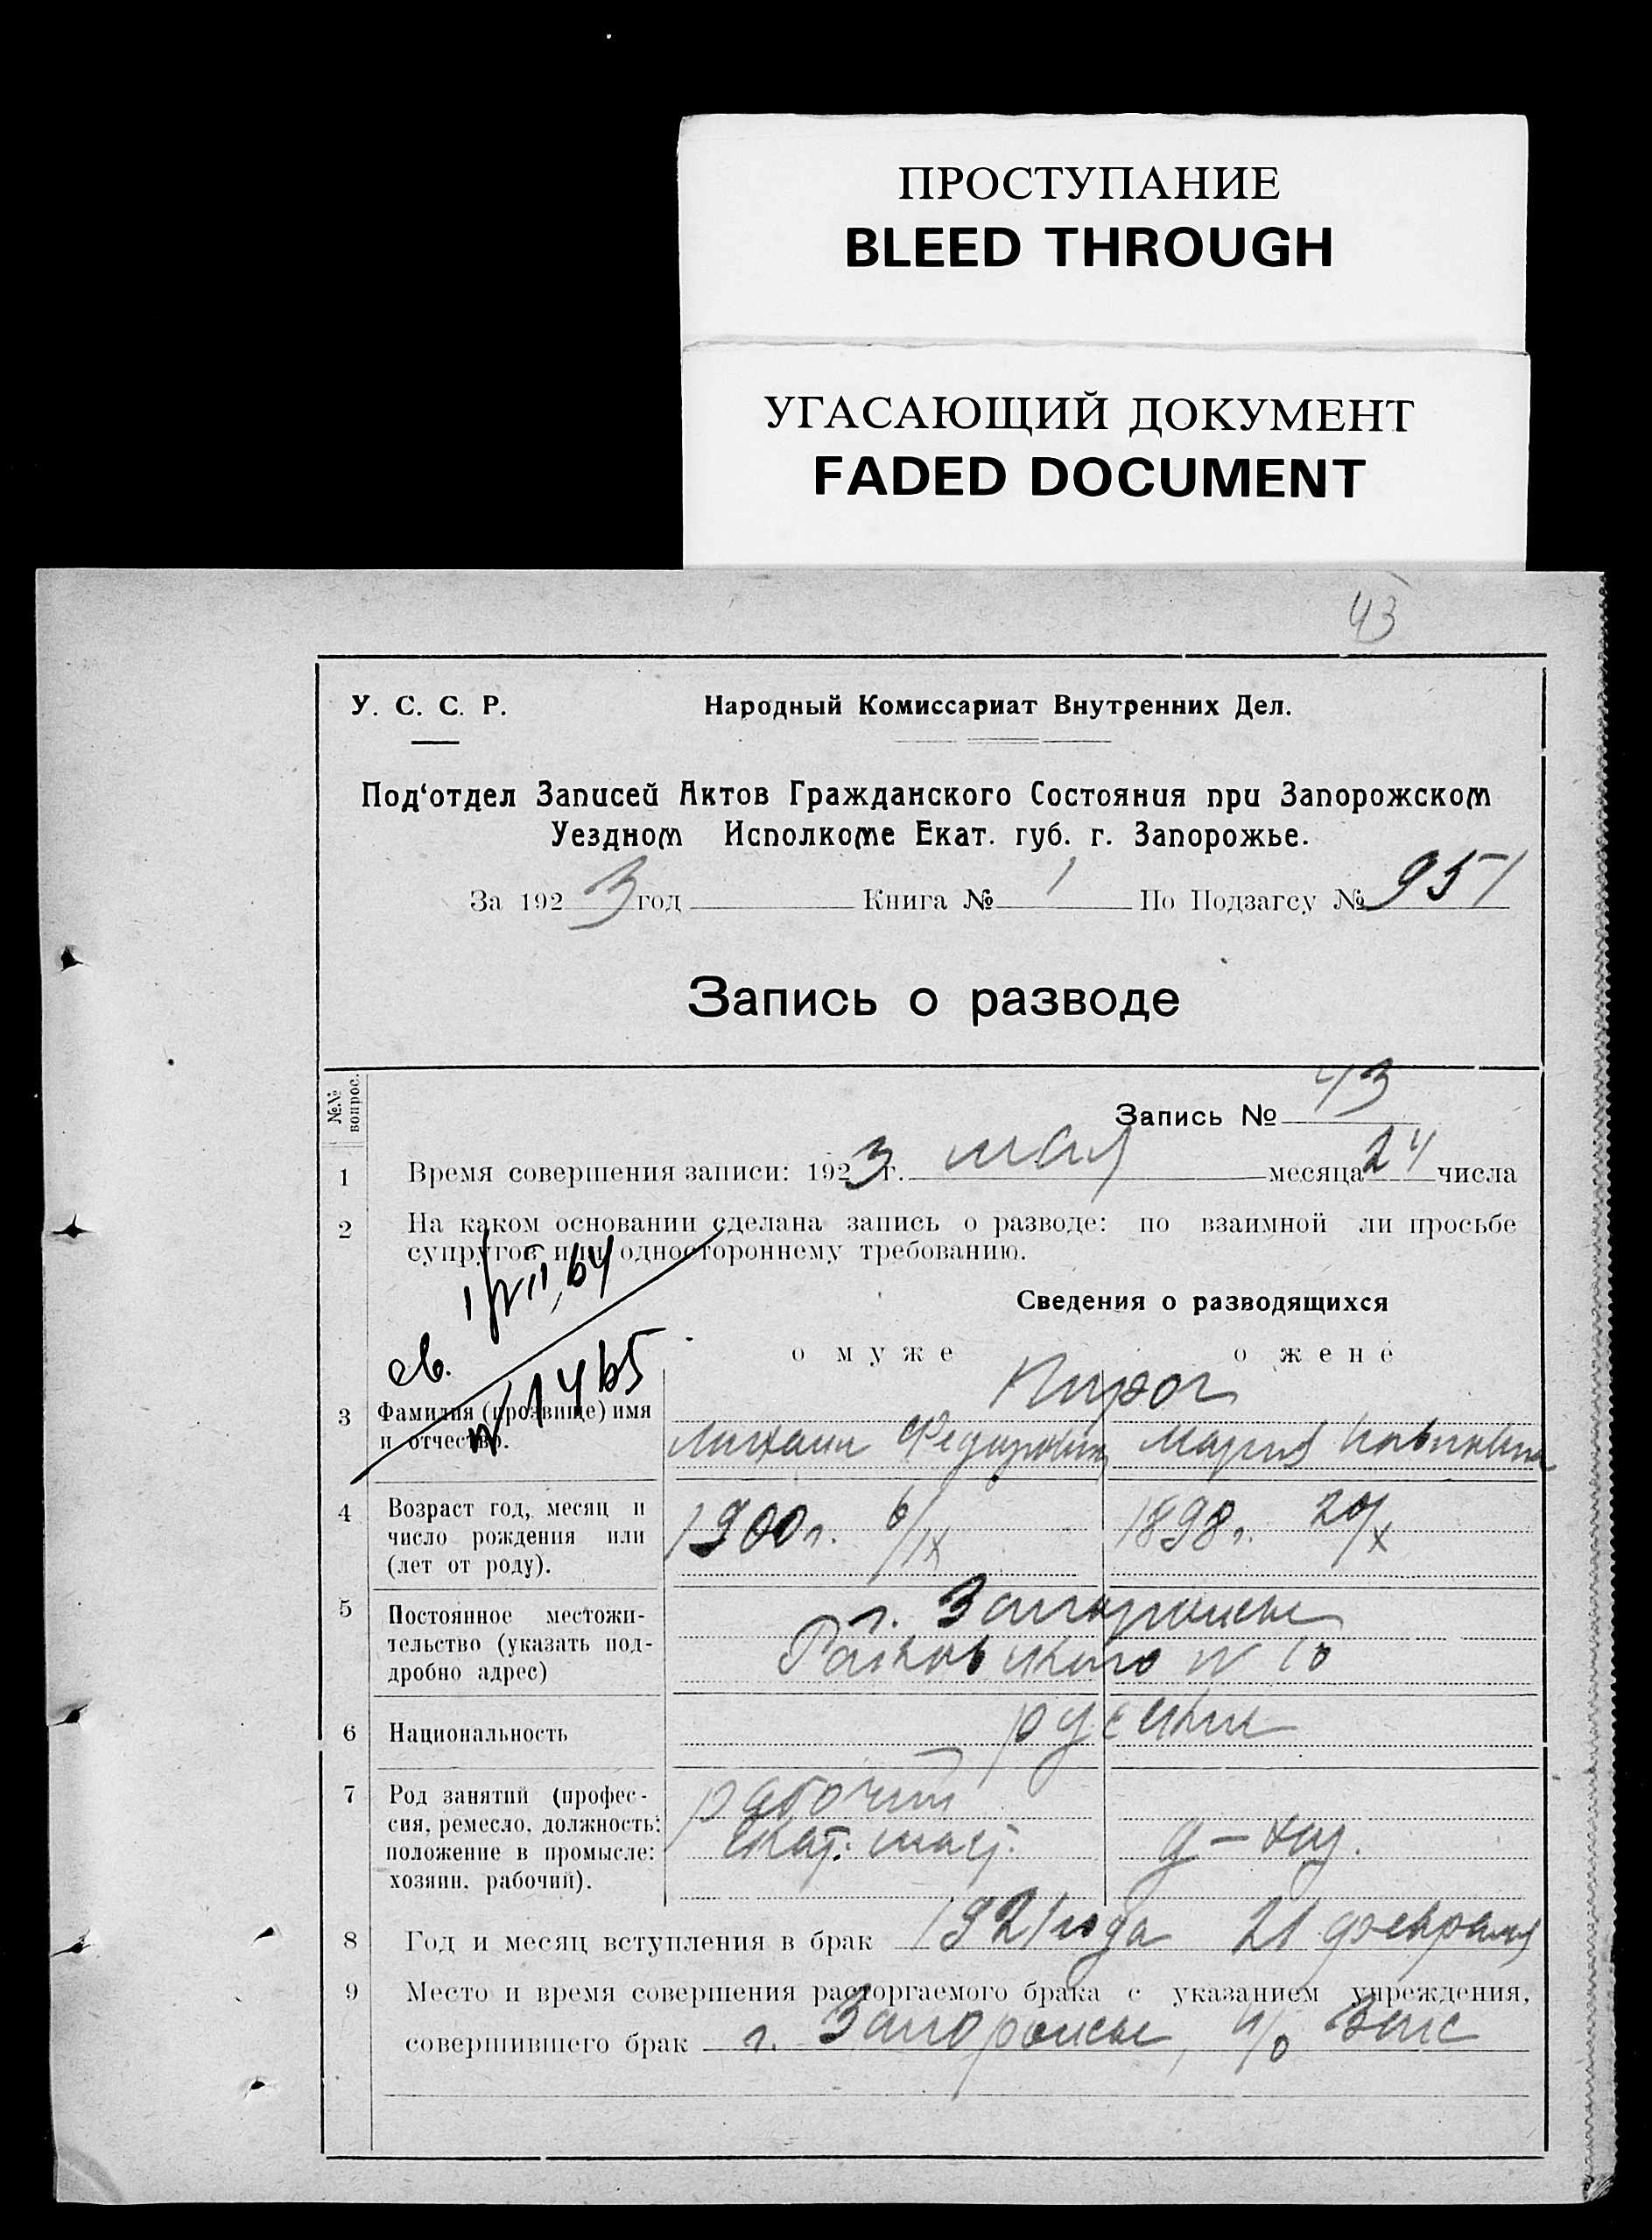 ПРОСТУПАНИЕ
BLEED THROUGH
УГАСАЮЩИЙ ДОКУМЕНТ
FADED DOCUMENT
43
У. С. С. Р. Народный Комиссариат Внутренних Дел.
Под‘отдел Записей Актов Гражданского Состояния при Запорожском
Уездном Исполкоме Екат. губ. г. Запорожье.
За 1923 год Книга № 1 По Подзагсу № 951
Запись о разводе
№№ вопрос.
Запись № 43
1 Время совершения записи: 1923 г. мая месяца 24 числа
2 На каком основании сделана запись о разводе: по взаимной ли просьбе
супругов или одностороннему требованию.
Сведения о разводящихся
св.
о муже о жене
№ 1465
Пирог
3 Фамилия (прозвище) имя
и отчество.
Михаил Федорович Мария
4 Возраст год, месяц и
число рождения или
(лет от роду).
1900 г. 6/IX 1898 г.
5 Постоянное местожи-
тельство (указать под-
дробно адрес)
г. Запорожье
Раковского № 10
6 Национальность русские
7 Род занятий (профес-
сия, ремесло, должность:
положение в промысле:
хозяин, рабочий).
рабочий
Екат. маст. д-хоз.
8 Год и месяц вступления в брак 1921 года 21 февраля
9 Место и время совершения расторгаемого брака с указанием учреждения,
совершившего брак г. Запорожье, п/о Загс